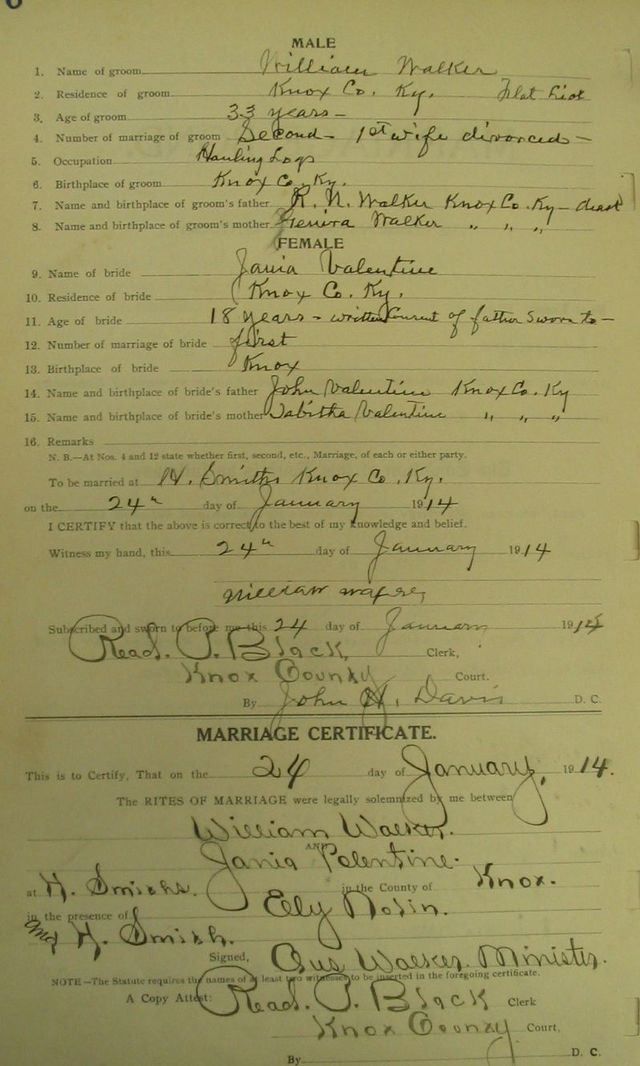 MALE
1. Name of groom William Walker
2. Residence of groom Knox Co. Ky. Flat Lick
3. Age of groom 33 years -
4. Number of marriage of groom Second - 1st wife divorced -
5. Occupation Hauling Logs
6. Birthplace of groom Knox Co. Ky.
7. Name and birthplace of groom's father R. N. Walker Knox Co. Ky - dead
8. Name and birthplace of groom's mother Walker " " "
FEMALE
9. Name of bride Jania Valentine
10. Residence of bride Knox Co. Ky.
11. Age of bride 18 years - written Consent of father sworn to -
12. Number of marriage of bride first
13. Birthplace of bride Knox
14. Name and birthplace of bride's father John Valentine Knox Co. Ky
15. Name and birthplace of bride's mother Tabitha Valentine " " "
16. Remarks
N. B.—At Nos. 4 and 12 state whether first, second, etc., Marriage, of each or either party.
To be married at H. Smiths Knox Co. Ky.
on the 24th day of January 1914
I CERTIFY that the above is correct to the best of my knowledge and belief.
Witness my hand, this 24th day of January 1914
William
Subscribed and sworn to before me this 24 day of January 1914
Read. P. Black Clerk,
Knox County Court.
By John H. Davis D. C.
MARRIAGE CERTIFICATE.
This is to Certify, That on the 24 day of January, 1914.
The RITES OF MARRIAGE were legally solemnized by me between
William Walker.
AND
Jania Palentine.
at H. Smiths. in the County of Knox.
in the presence of Ely Nolin.
and H. Smith.
Signed, Gus Walker. Minister.
NOTE—The Statute requires the names of at least two witnesses to be inserted in the foregoing certificate.
A Copy Attest: Read. P. Black Clerk
Knox County Court,
By D. C.